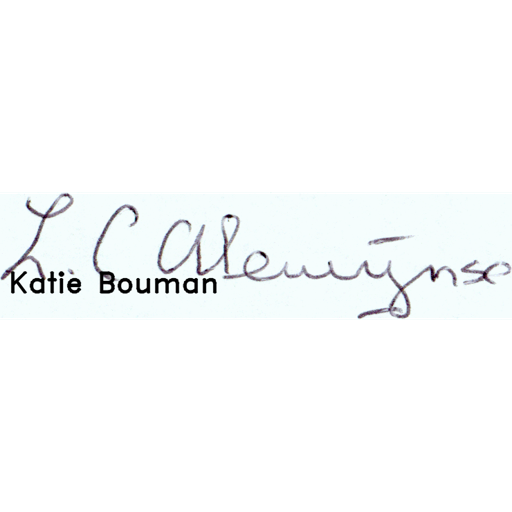 L. C. Alenwijnse
Katie Bouman